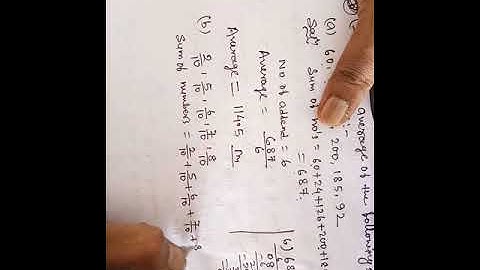 average of the following:-
(a) 60, 200, 185, 92
Sol^n Sum of no's = 60+24+126+200+18
= 687.
No of addend = 6
Average = 687/6
Average = 114.5 Ans
(b) 2/10, 5/10, 6/10, 7/10, 8/10
Sum of numbers = 2/10 + 5/10 + 6/10 + 7/10 + 8
6) 68
6
08